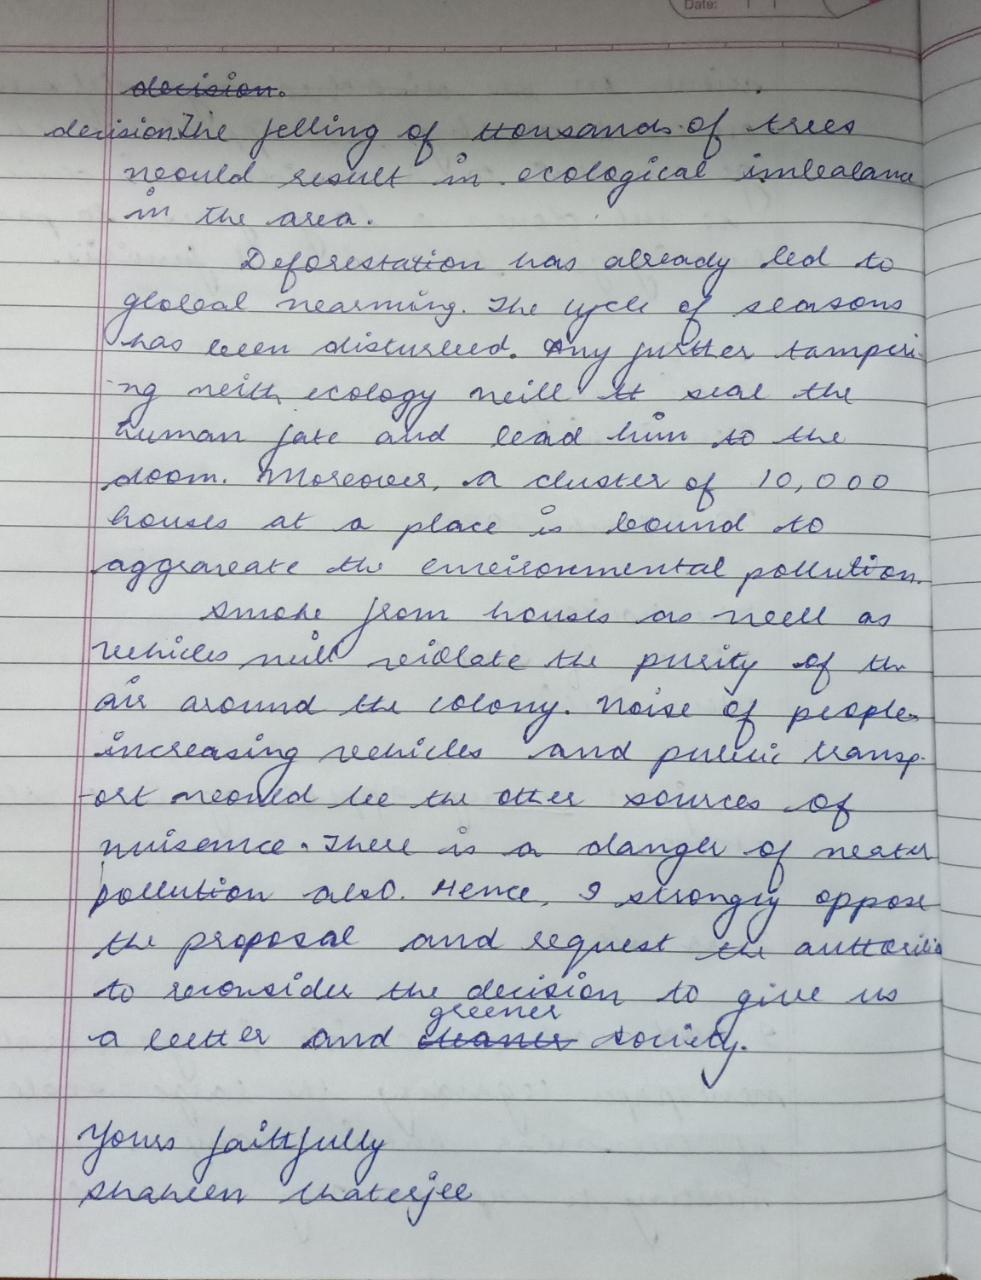 Date:
decision.
decision. The felling of thousands of trees
would result in ecological imbalance
in the area.
Deforestation has already led to
global warming. The cycle of seasons
has been disturbed. Any further tamperi-
-ng with ecology will it seal the
human fate and lead him to the
doom. Moreover, a cluster of 10,000
houses at a place is bound to
aggravate the environmental pollution.
Smoke from houses as well as
vehicles will violate the purity of the
air around the colony. Noise of people,
increasing vehicles and public transp-
-ort would be the other sources of
nuisence. There is a danger of water
pollution also. Hence, I strongly oppose
the proposal and request the authorities
to reconsider the decision to give us
greener
a better and cleaner society.
Yours faithfully
Chaterjee